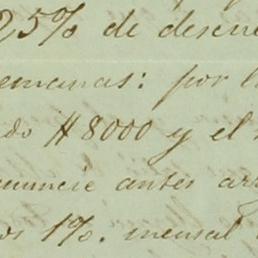 25% de descue
emanas: por l
do $8000 y el
enuncie antes ar
os 1%. mensual